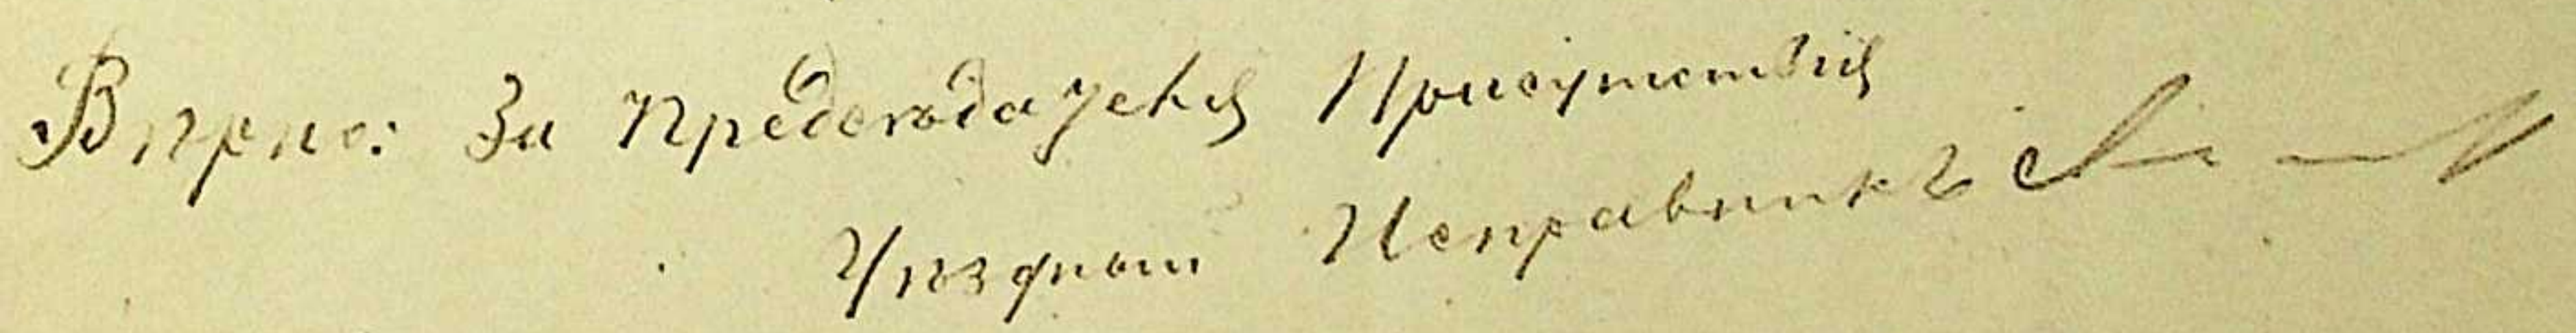 Вѣрно: За Предсѣдателя Присутствія
Уѣздный Исправникъ